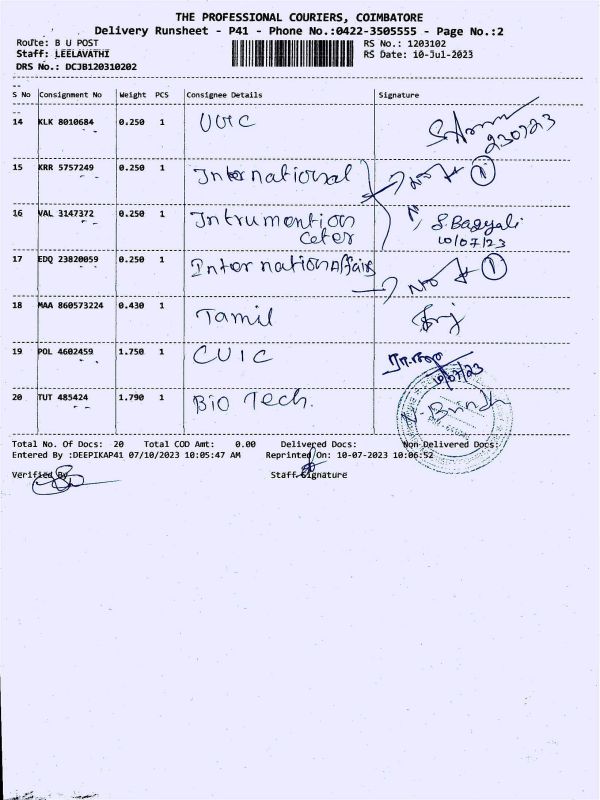 THE PROFESSIONAL COURIERS, COIMBATORE
Delivery Runsheet - P41 - Phone No.:0422-3505555 - Page No.:2
Route: B U POST
RS No.: 1203102
Staff: LEELAVATHI
RS Date: 10-Jul-2023
DRS No.: DCJB120310202
S No Consignment No Weight PCS Consignee Details Signature
14 KLK 8010684 0.250 1
230723
15 KRR 5757249 0.250 1 International
16 VAL 3147372 0.250 1 Intrumention
Ceter
S. Bagyali
10/07/23
17 EDQ 23820059 0.250 1 InternationAffairs
18 MAA 860573224 0.430 1 Tamil
19 POL 4602459 1.750 1 CUIC
10/07/23
20 TUT 485424 1.790 1 Bio Tech.
Total No. Of Docs: 20 Total COD Amt: 0.00 Delivered Docs: Non Delivered Docs:
Entered By :DEEPIKAP41 07/10/2023 10:05:47 AM Reprinted On: 10-07-2023 10:06:52
Verified By Staff Signature